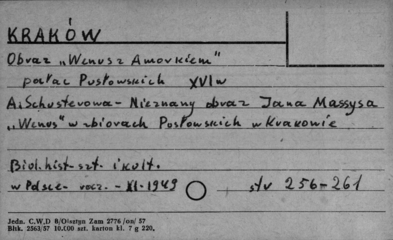 KRAKÓW
Obraz „Wenus z Amorkiem"
pałac Pusłowskich XVI w
A. Schusterowa - Nieznany obraz Jana Massysa
„Wenus" w zbiorach Posłowskich w Krakowie
Biul. hist. szt. i kult.
w Polsce - rocz. - XI - 1949 str 256-261
Jedn. C.W.D 8/Olsztyn Zam 2776 /on/ 57
Błhk. 2563/57 10.000 szt. karton kl. 7 g 220,